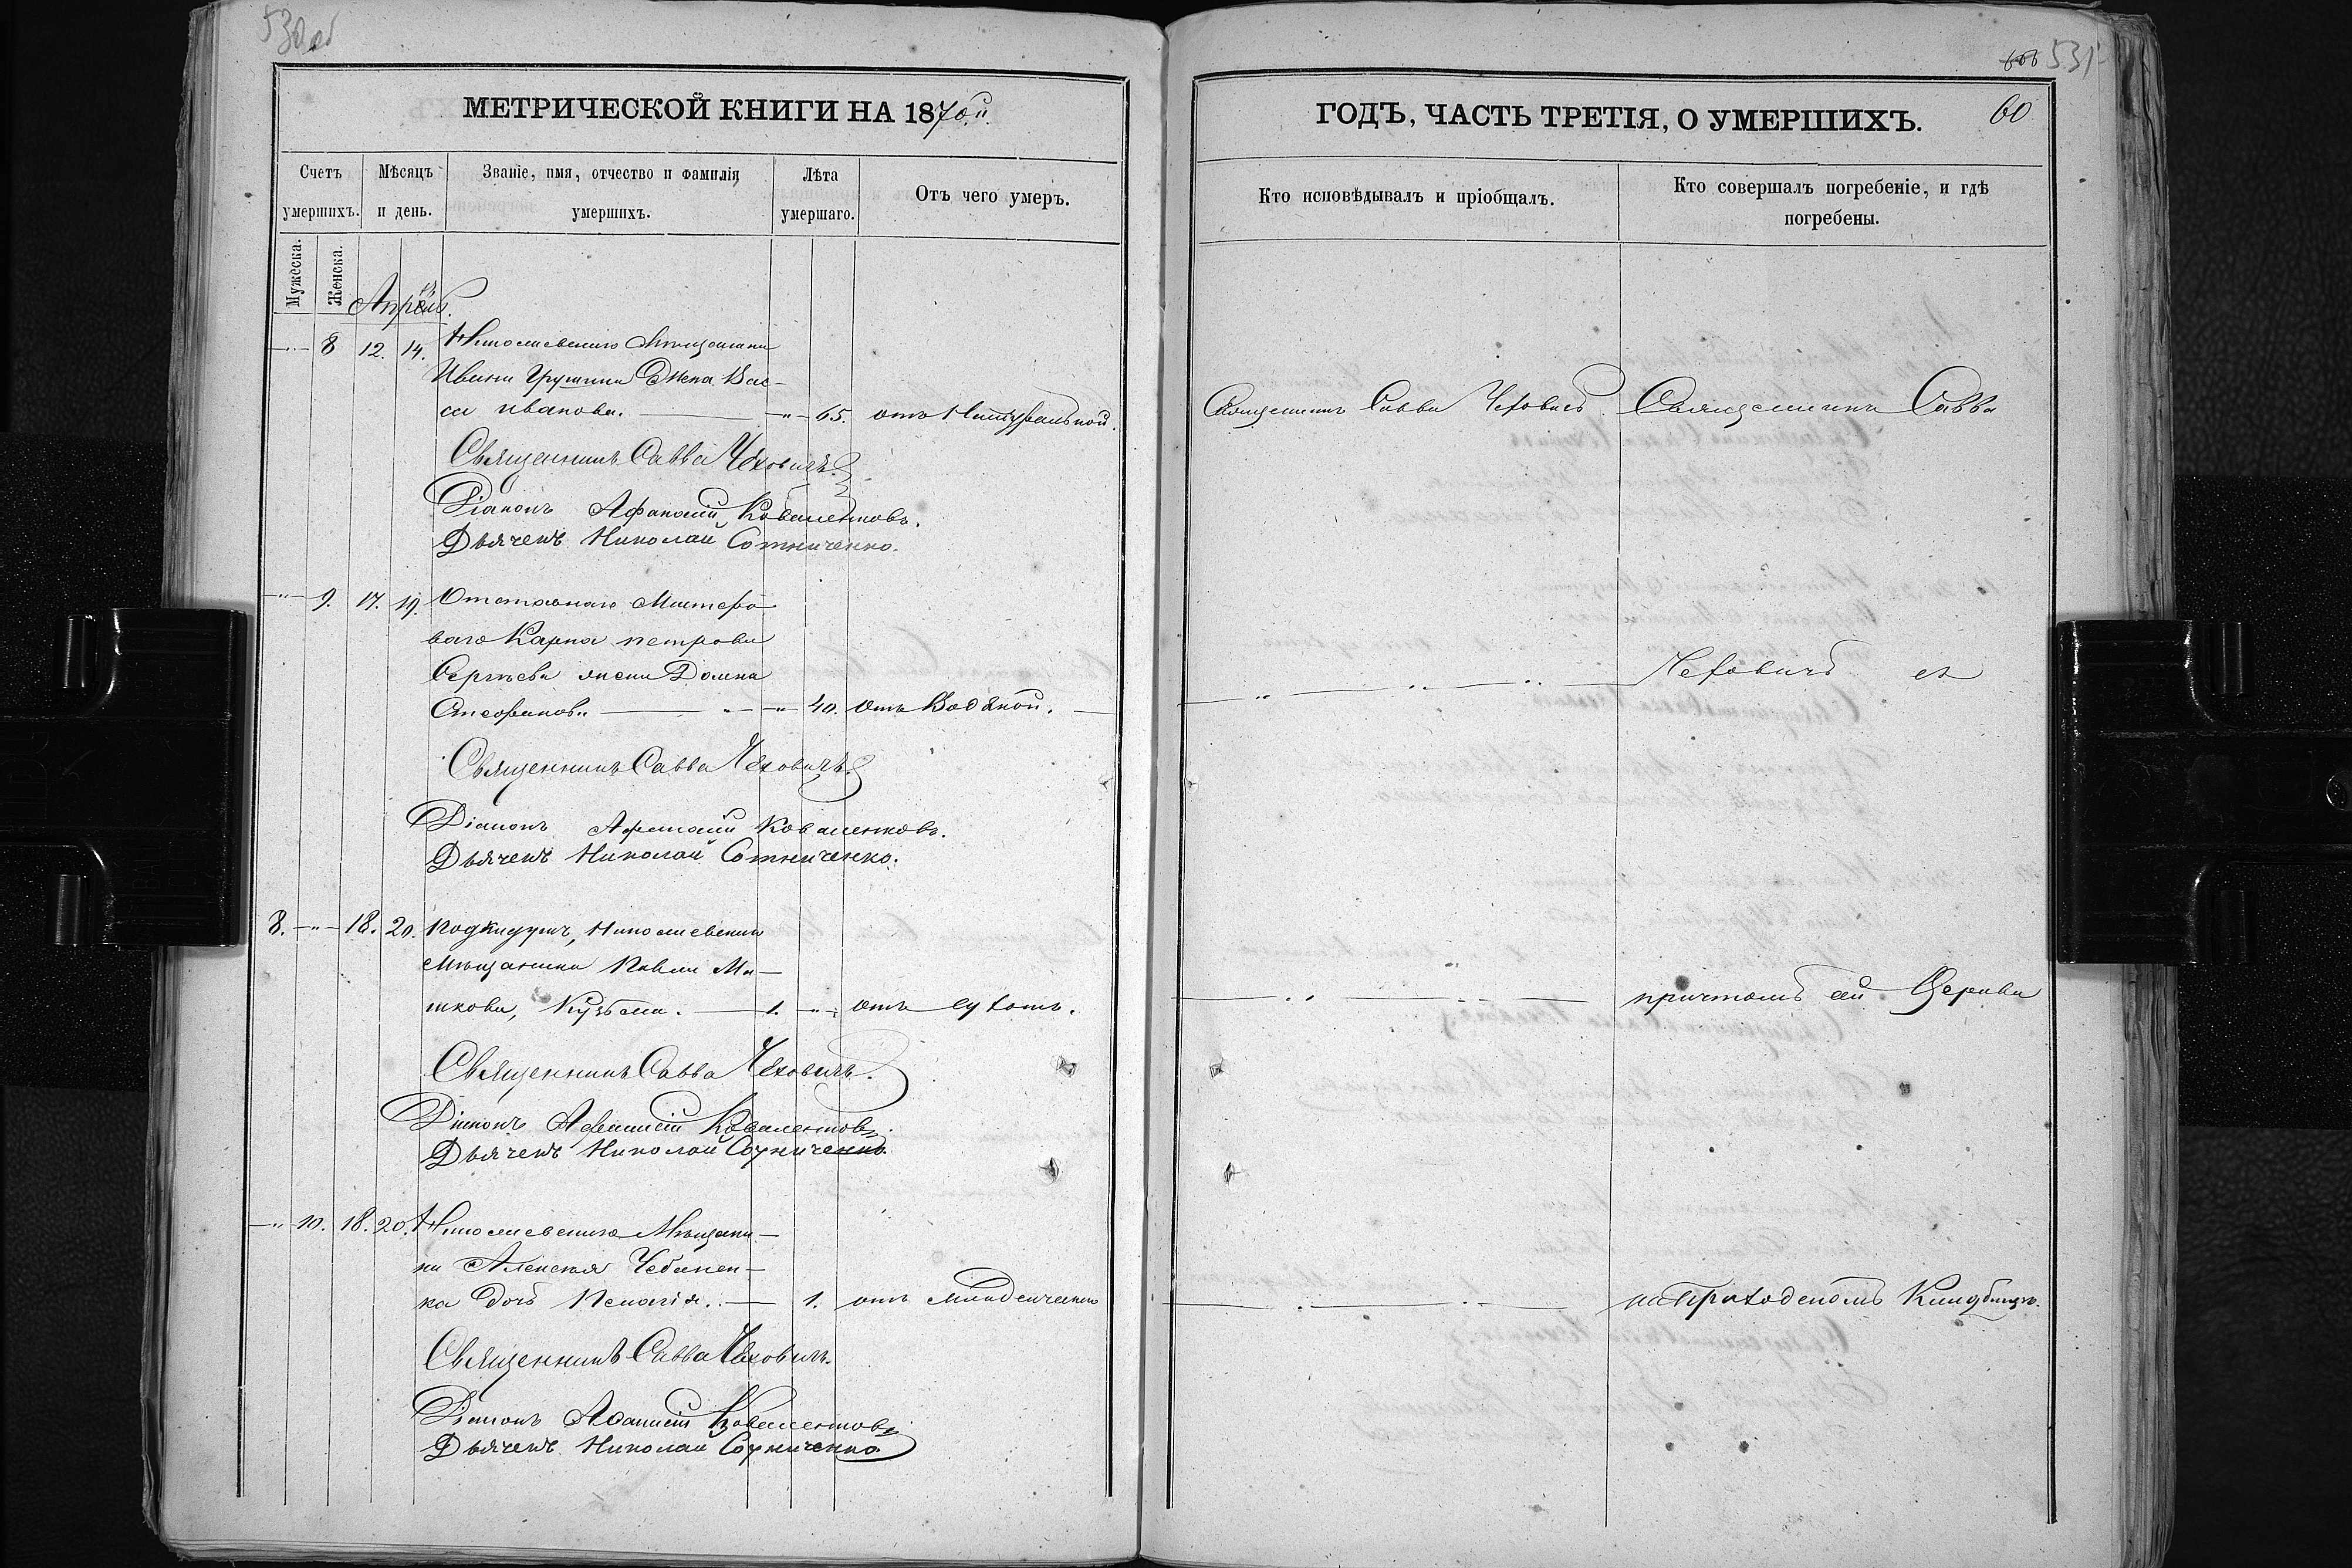 530 об
МЕТРИЧЕСКОЙ КНИГИ НА 1870й.
Счетъ умершихъ.
Мѣсяцъ и день.
Званіе, имя, отчество и фамилія умершихъ.
Лѣта умершаго.
Отъ чего умеръ.
Мужеска.
Женска.
Апрѣль.
8 12. 14. Николаевскаго Мѣщанина
Ивана Грушина Жена Вас-
са Иванова. 65. отъ Натуральной.
Священникъ Савва Чеховичъ.
Діаконъ Афанасій Коваленковъ.
Дьячекъ Николай Сотниченко.
9. 17. 19. Отставнаго Мастеро
ваго Карпа петрова
Сергѣева жена Домна
40. отъ Водяной.
Священникъ Савва Чеховичъ.
Діаконъ Афанасій Коваленковъ.
Дьячекъ Николай Сотниченко.
8. 18. 20. Подкидуш, Николаевскаго
мѣщанина Павла Ма-
шкова, Кузьма. 1. отъ сухотъ.
Священникъ Савва Чеховичъ.
Діаконъ Афанасій Коваленковъ.
Дьячекъ Николай Сотниченко.
10. 18. 20. Николаевскаго Мѣщани-
на Алексея Чебанен-
ка дочь Пелагія. 1. отъ младенческ
Священникъ Савва Чеховичъ.
Діаконъ Афанасій Коваленковъ
Дьячекъ Николай Сотниченко
531
ГОДЪ, ЧАСТЬ ТРЕТІЯ, О УМЕРШИХЪ. 60
Кто исповѣдывалъ и пріобщалъ.
Кто совершалъ погребеніе, и гдѣ погребены.
Священникъ Савва Чеховичъ. Священникъ Савва
Чеховичъ съ
причтомъ сей Церкви
на приходскомъ Кладбищѣ.